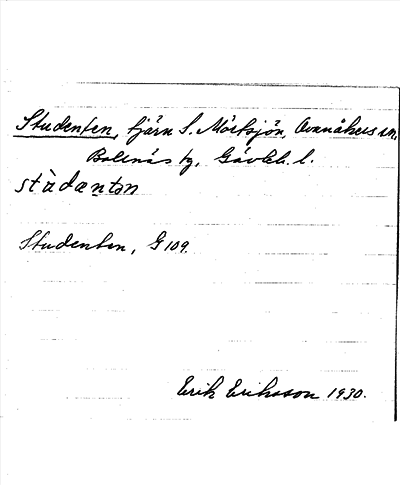 Studenten, tjärn S. Mörtsjön, Ovanåkers sn,
Bollnäs tg, Gävleb. l.
stùdæntən
Studenten, G 109.
Erik Eriksson 1930.